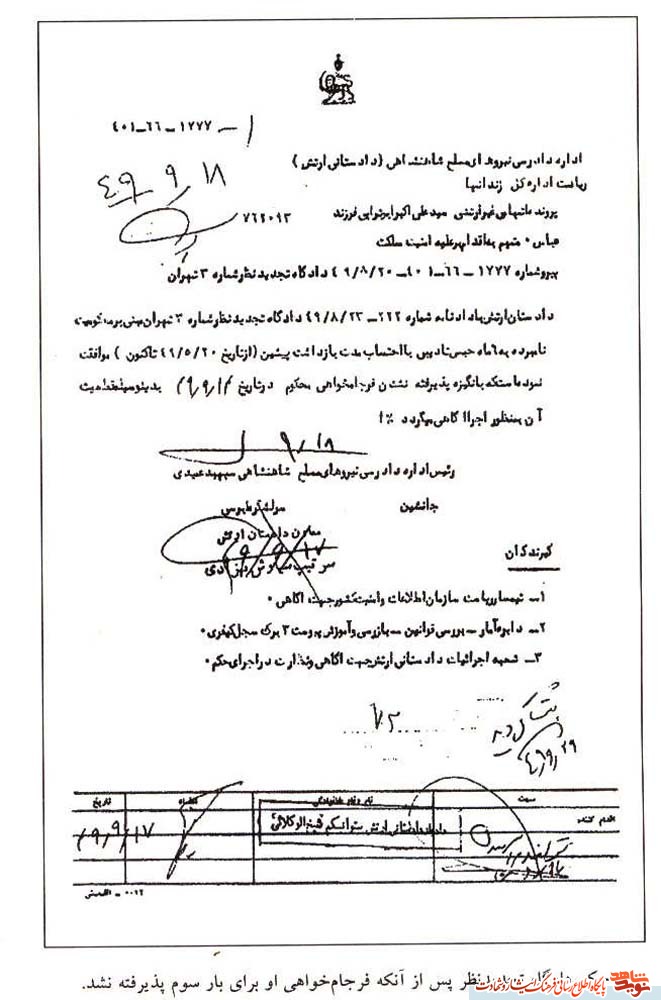 ۴۰۱-۶۶-۱۷۷۷-۱
اداره دادرسی نیروهای مسلح شاهنشاهی (دادستانی ارتش)
ریاست اداره کل زندانها
۴۹/۹/۱۸
پرونده اتهامی غیر ارتشی سید علی اکبر ابوترابی فرزند ۷۶۲۰۹۳
عباس متهم به اقدام بر علیه امنیت مملکت
پیرو شماره ۱۷۷۷-۶۶-۴۰۱-۴۹/۸/۲۰ دادگاه تجدید نظر شماره ۳ تهران
دادستان ارتش با دادنامه شماره ۲۲۲-۴۹/۸/۲۳ دادگاه تجدید نظر شماره ۳ تهران مبنی بر محکومیت
نامبرده به ۶ ماه حبس تادیبی با احتساب مدت بازداشت پیشین (از تاریخ ۴۹/۵/۲۰ تاکنون) موافقت
نموده است که بانگیزه پذیرفته نشدن فرجامخواهی محکوم در تاریخ بدینوسیله قطعیت
آن بمنظور اجرا آگاهی میگردد
۹/۱۸
رئیس اداره دادرسی نیروهای مسلح شاهنشاهی سپهبد
جانشین
معاون دادستان ارتش
۹/۹/۱۷
سرتیپ سیاوش بهزادی
گیرندگان
۱- تیمسار ریاست سازمان اطلاعات و امنیت کشور جهت آگاهی.
۲- دایره آمار - بررسی قوانین - بازرسی و آموزش پیوست ۳ برگ سجل کیفری.
۳- شعبه اجرائیات دادستانی ارتش جهت آگاهی و نظارت در اجرای حکم.
۷۲
۴۹/۹/۱۹
سمت نام و نام خانوادگی امضاء تاریخ
اقدام کننده دادیار دادستانی ارتش ۴۹/۹/۱۷
دادگاه تجدیدنظر پس از آنکه فرجام‌خواهی او برای بار سوم پذیرفته نشد.
نوید شاهد پایگاه اطلاع رسانی فرهنگ ایثار و شهادت